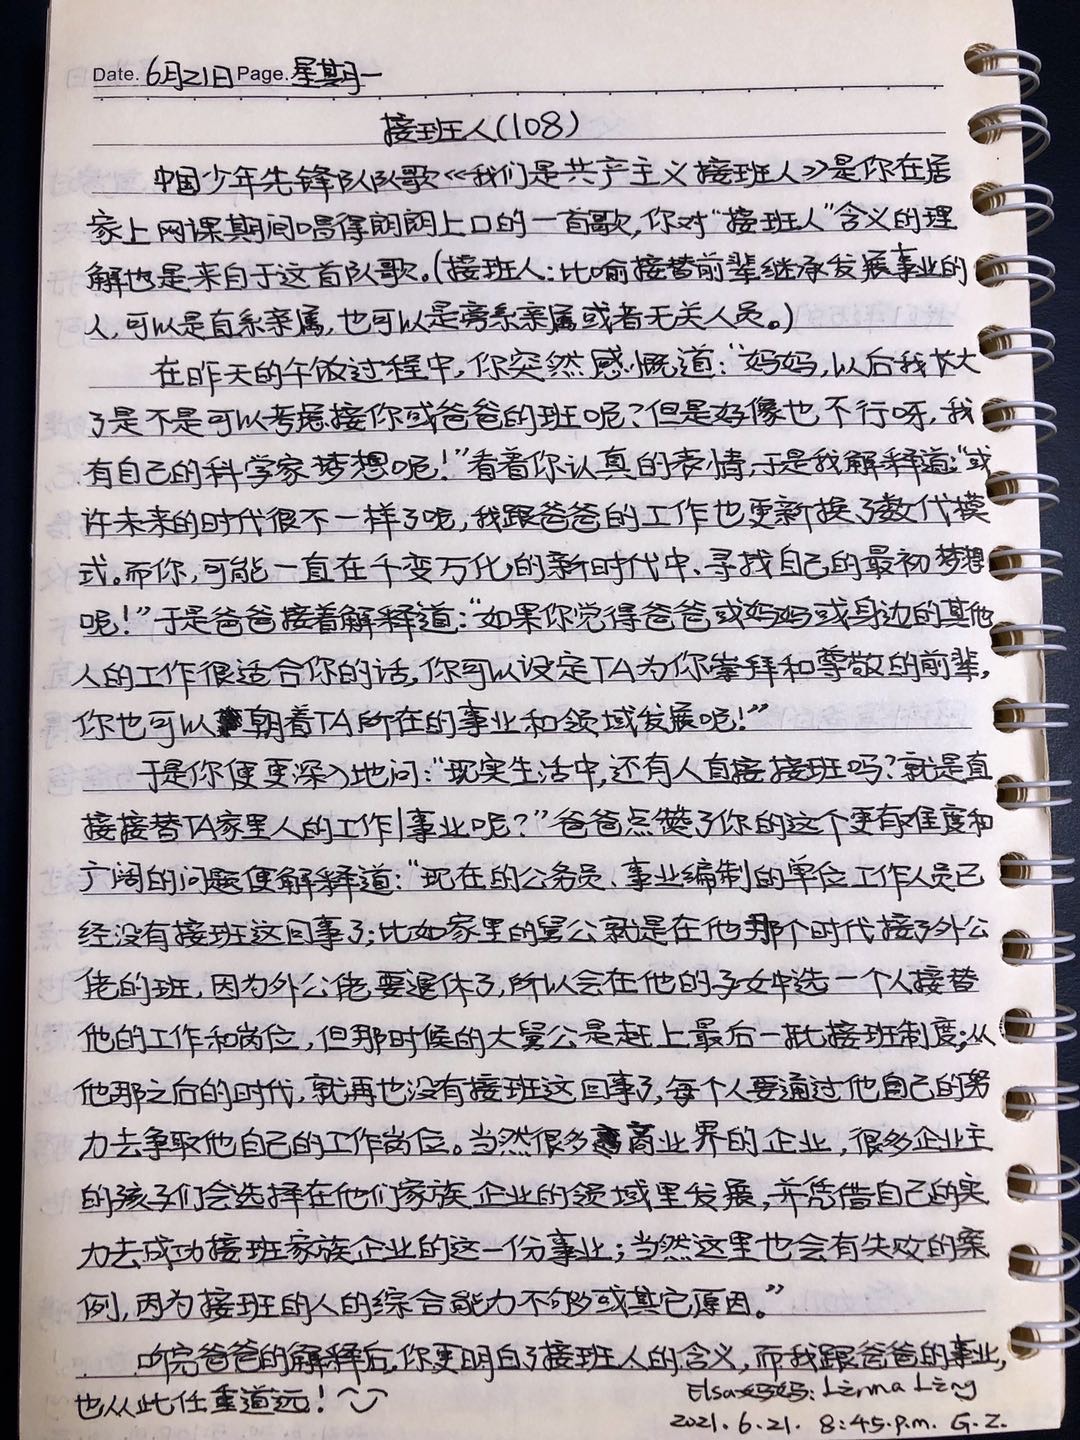 Date. 6月21日 Page. 星期一
接班人(108)
中国少年先锋队队歌《我们是共产主义接班人》是你在居
家上网课期间唱得朗朗上口的一首歌,你对“接班人”含义的理
解也是来自于这首队歌。(接班人:比喻接替前辈继承发展事业的
人,可以是直系亲属,也可以是旁系亲属或者无关人员。)
在昨天的午饭过程中,你突然感慨道:“妈妈,以后我长大
了是不是可以考虑接你或爸爸的班呢?但是好像也不行呀,我
有自己的科学家梦想呢!”看着你认真的表情,于是我解释道:“或
许未来的时代很不一样了呢,我跟爸爸的工作也更新换了数代模
式。而你,可能一直在千变万化的新时代中、寻找自己的最初梦想
呢!”于是爸爸接着解释道:“如果你觉得爸爸或妈妈或身边的其他
人的工作很适合你的话,你可以设定TA为你崇拜和尊敬的前辈,
你也可以朝着TA所在的事业和领域发展呢!”
于是你便更深入地问:“现实生活中,还有人直接接班吗?就是直
接接替TA家里人的工作/事业呢?”爸爸点赞了你的这个更有难度和
广阔的问题便解释道:“现在的公务员、事业编制的单位工作人员已
经没有接班这回事了;比如家里的舅公就是在他那个时代接了外公
佬的班,因为外公佬要退休了,所以会在他的子女中选一个人接替
他的工作和岗位,但那时候的大舅公是赶上最后一批接班制度;从
他那之后的时代,就再也没有接班这回事了,每个人要通过他自己的努
力去争取他自己的工作岗位。当然很多商业界的企业,很多企业主
的孩子们会选择在他们家族企业的领域里发展,并凭借自己的实
力去成功接班家族企业的这一份事业;当然这里也会有失败的案
例,因为接班的人的综合能力不够或其它原因。”
听完爸爸的解释后,你更明白了接班人的含义,而我跟爸爸的事业,
也从此任重道远!
Elsa妈妈: Linna Ling
2021.6.21. 8:45.p.m. G.Z.